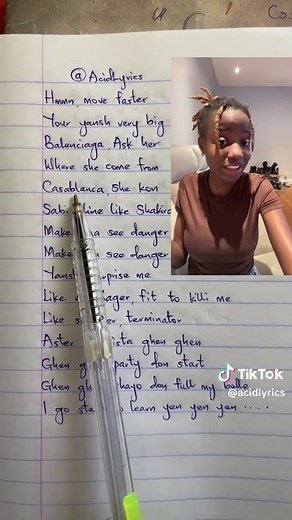 @AcidLyrics
Hmmn, move faster
Your yansh very big
Balenciaga, Ask her
Where she come from
Casablanca, She kon
Sabi shine like Shakira
Make see danger
Make see danger
Yansh surprise me
Like ager, fit to killi me
Like er, terminator
Aster sta ghen ghen
Ghen g party don start
Ghen gh hayo don full my belle
I go sta learn yen yen yen ....
TikTok
@acidlyrics